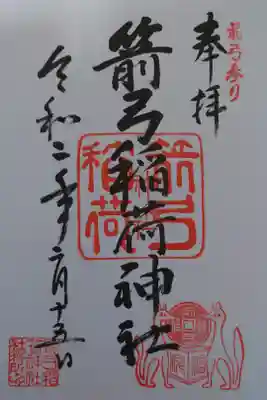 箭弓参り
奉拝
箭弓稲荷神社
箭弓
稲荷
令和二年二月十五日